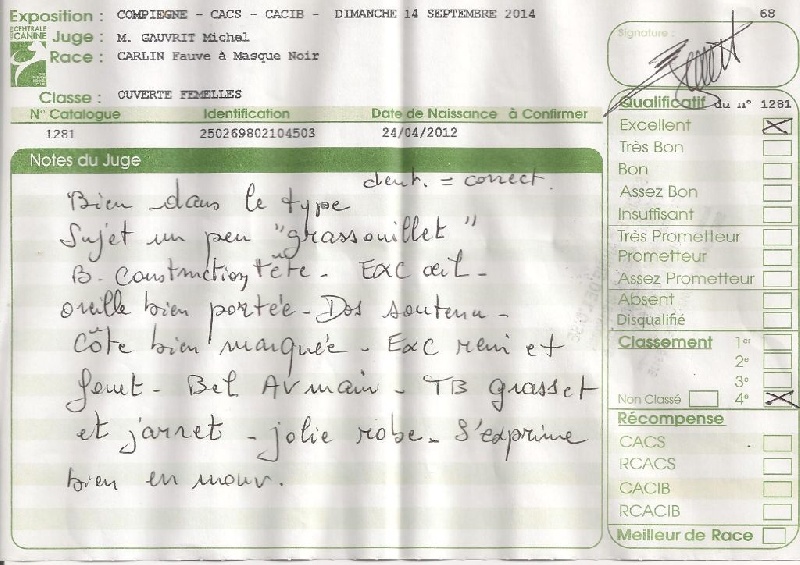 Exposition : COMPIEGNE - CACS - CACIB - DIMANCHE 14 SEPTEMBRE 2014
68
CENTRALE
CANINE
Juge : M. GAUVRIT Michel
Race : CARLIN Fauve à Masque Noir
Classe : OUVERTE FEMELLES
Signature :
N° Catalogue Identification Date de Naissance à Confirmer
1281 250269802104503 24/04/2012
Notes du Juge
dent. = correct.
Bien dans le type
Sujet un peu "grassouillet"
B. Construction tête - EXC œil -
oreille bien portée - Dos soutenu -
Côte bien marquée - Exc rein et
fouet - Bel AV main - TB grasset
et jarret - jolie robe - S'exprime
bien en mouv.
Qualificatif du n° 1281
Excellent
Très Bon
Bon
Assez Bon
Insuffisant
Très Prometteur
Prometteur
Assez Prometteur
Absent
Disqualifié
Classement 1er
2e
3e
Non Classé 4e
Récompense
CACS
RCACS
CACIB
RCACIB
Meilleur de Race